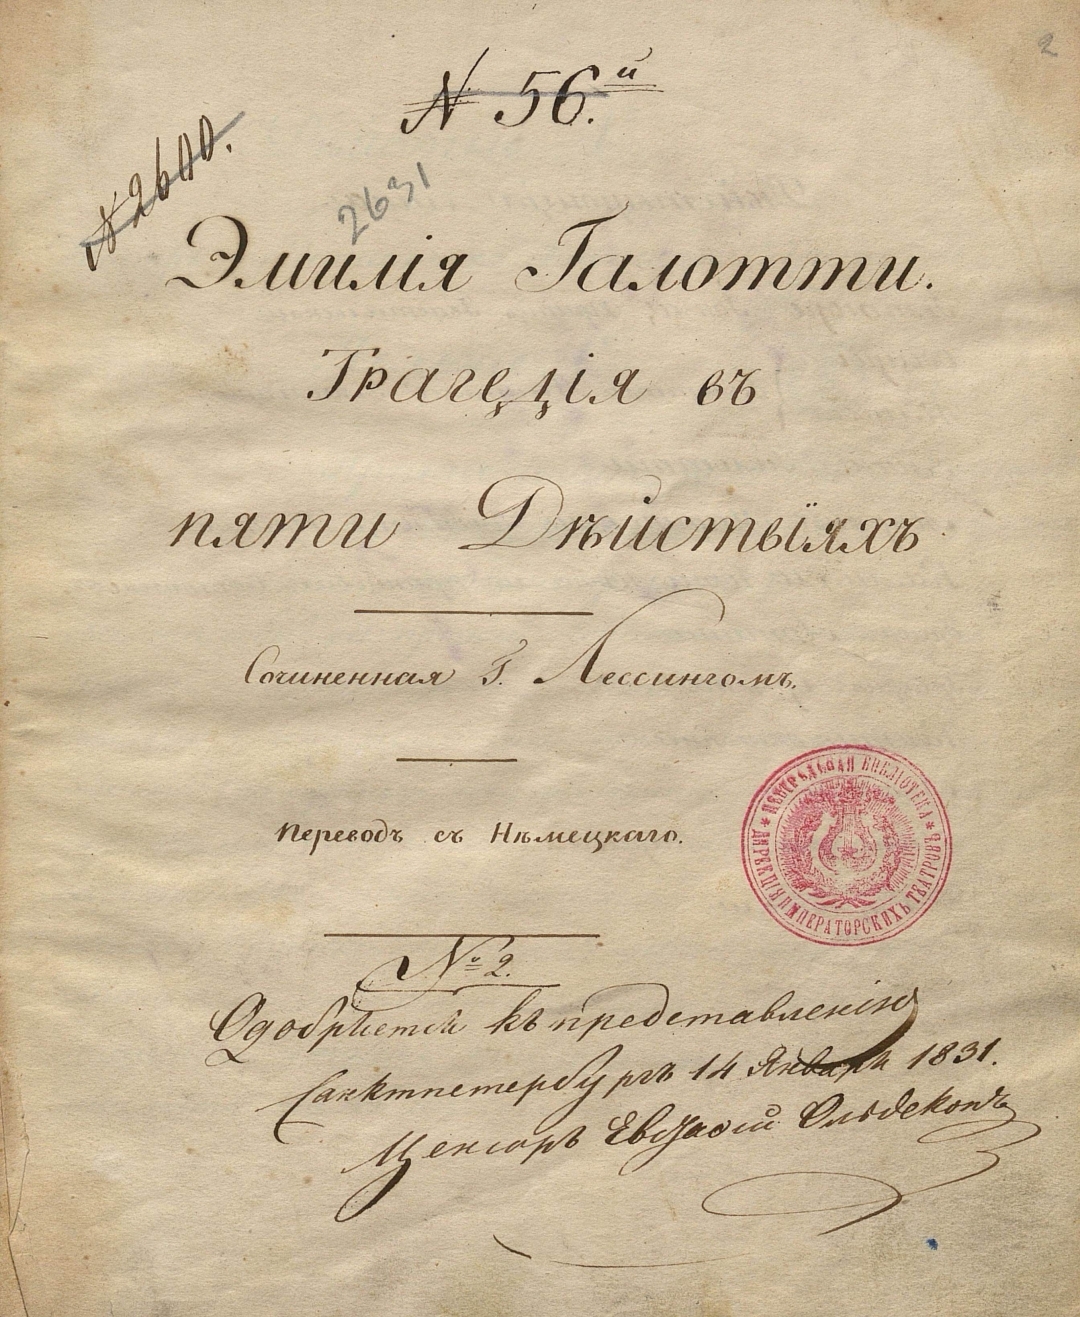 2
N 56.й
N 2600.
2631
Эмилія Галотти.
Трагедія въ
пяти Дѣйствіяхъ
Сочиненная Г. Лессингомъ.
Переводъ съ Нѣмецкаго.
ЦЕНТРАЛЬНАЯ БИБЛІОТЕКА
* ДИРЕКЦІИ ИМПЕРАТОРСКИХЪ ТЕАТРОВЪ *
№ 2.
Одобряется къ представленію
Санктпетербургъ 14 Января 1831.
Ценсоръ Евстафій Ольдекопъ